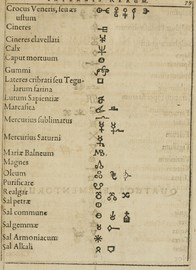 Crocus Veneris, seu æs
ustum
Cineres
Cineres clavellati
Calx
Caput mortuum
Gummi
Lateres cribrati seu Tegu-
larum farina
Lutum Sapientiæ
Marcasita
Mercurius sublimatus
Mercurius Saturni
Mariæ Balneum
Magnes
Oleum
Purificare
Realgar
Sal petræ
Sal commune
Sal gemmæ
Sal Armoniacum
Sal Alkali